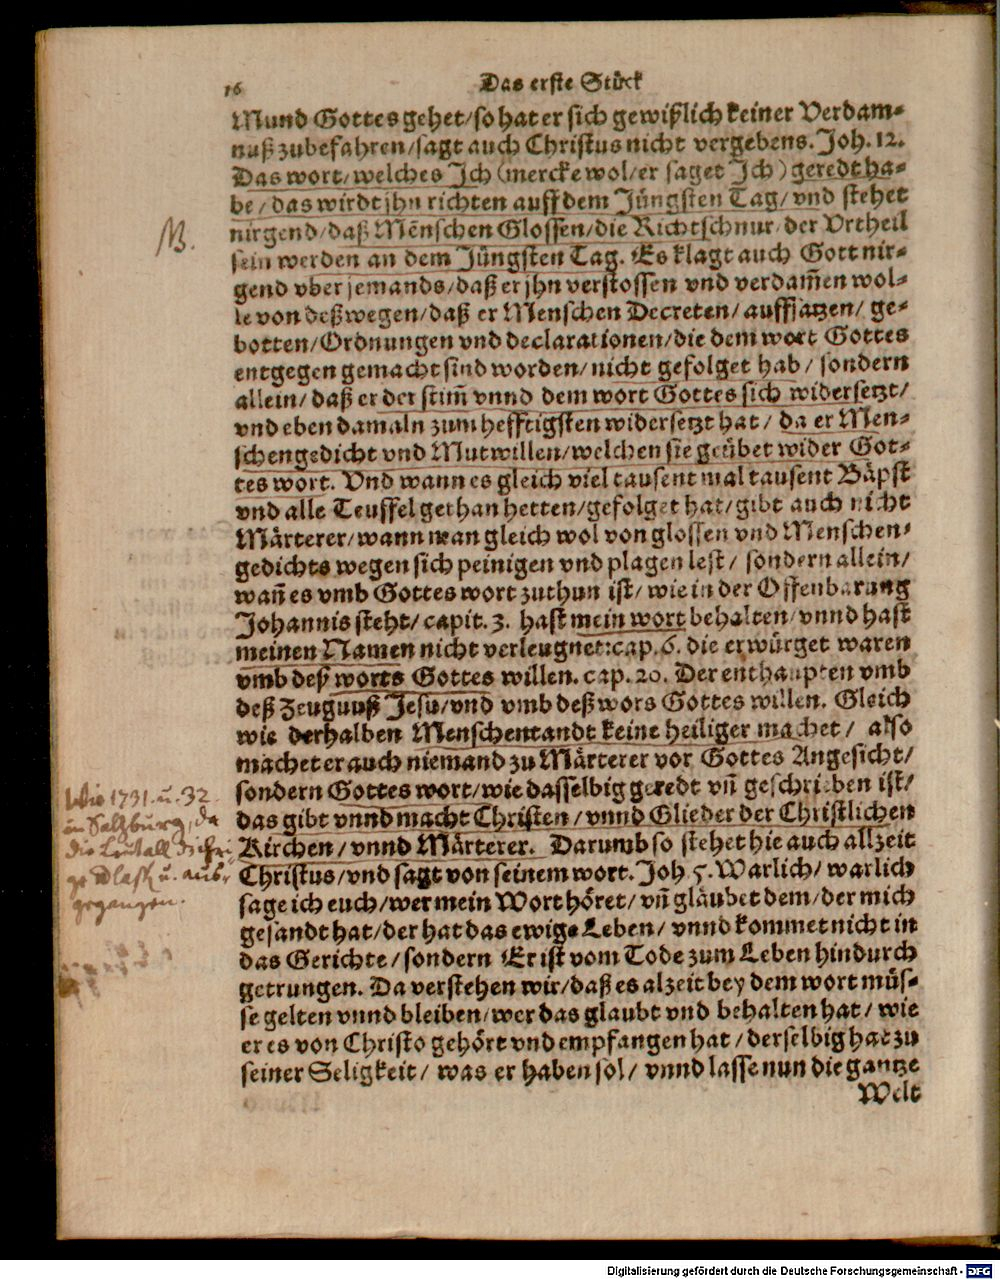 16
Das erste Stück
Mund Gottes gehet/so hat er sich gewißlich keiner Verdam-
nuß zubefahren/sagt auch Christus nicht vergebens. Joh. 12.
Das wort/welches Jch (mercke wol/er saget Jch) geredt ha-
be/das wirdt jhn richten auff dem Jüngsten Tag/vnd stehet
nirgend/daß Mẽnschen Glossen/die Richtschnur der Vrtheil
sein werden an dem Jüngsten Tag. Es klagt auch Gott nir-
gend vber jemands/daß er jhn verstossen vnd verdam̃en wol-
le von deßwegen/daß er Menschen Decreten/auffsatzen/ ge-
botten/Ordnungen vnd declarationen/die dem wort Gottes
entgegen gemacht sind worden/nicht gefolget hab/ sondern
allein/daß er der stim̃ vnnd dem wort Gottes sich widersetzt/
vnd eben damaln zum hefftigsten widersetzt hat/ da er Men-
schengedicht vnd Mutwillen/welchen sie geübet wider Got-
tes wort. Vnd wann es gleich viel tausent mal tausent Bäpst
vnd alle Teuffel gethan hetten/gefolget hat/gibt auch nicht
Märterer/wann man gleich wol von glossen vnd Menschen-
gedichts wegen sich peinigen vnd plagen lest/ sondern allein/
wañ es vmb Gottes wort zuthun ist/wie in der Offenbarung
Johannis steht/capit. 3. hast mein wort behalten/vnnd hast
meinen Namen nicht verleugnet:cap. 6. die erwürget waren
vmb deß worts Gottes willen. cap. 20. Der enthaupten vmb
deß Zeugnuß Jesu/vnd vmb deß wors Gottes willen. Gleich
wie derhalben Menschentandt keine heiliger machet/ also
machet er auch niemand zu Märterer vor Gottes Angesicht/
sondern Gottes wort/wie dasselbig geredt vñ geschrieben ist/
das gibt vnnd macht Christen/vnnd Glieder der Christlichen
Kirchen/vnnd Märterer. Darumb so stehet hie auch allzeit
Christus/vnd sagt von seinem wort. Joh. 5. Warlich/warlich
sage ich euch/wer mein Wort höret/vñ gläubet dem/der mich
gesandt hat/der hat das ewige Leben/ vnnd kommet nicht in
das Gerichte/sondern Er ist vom Tode zum Leben hindurch
getrungen. Da verstehen wir/daß es alzeit bey dem wort müs-
se gelten vnnd bleiben/wer das glaubt vnd behalten hat/wie
er es von Christo gehört vnd empfangen hat/derselbig hat zu
seiner Seligkeit/ was er haben sol/ vnnd lasse nun die gantze
Welt
Wie 1731. u. 32
in Salzburg, da
die
u. aus-
gegangen.
Digitalisierung gefördert durch die Deutsche Forschungsgemeinschaft - DFG